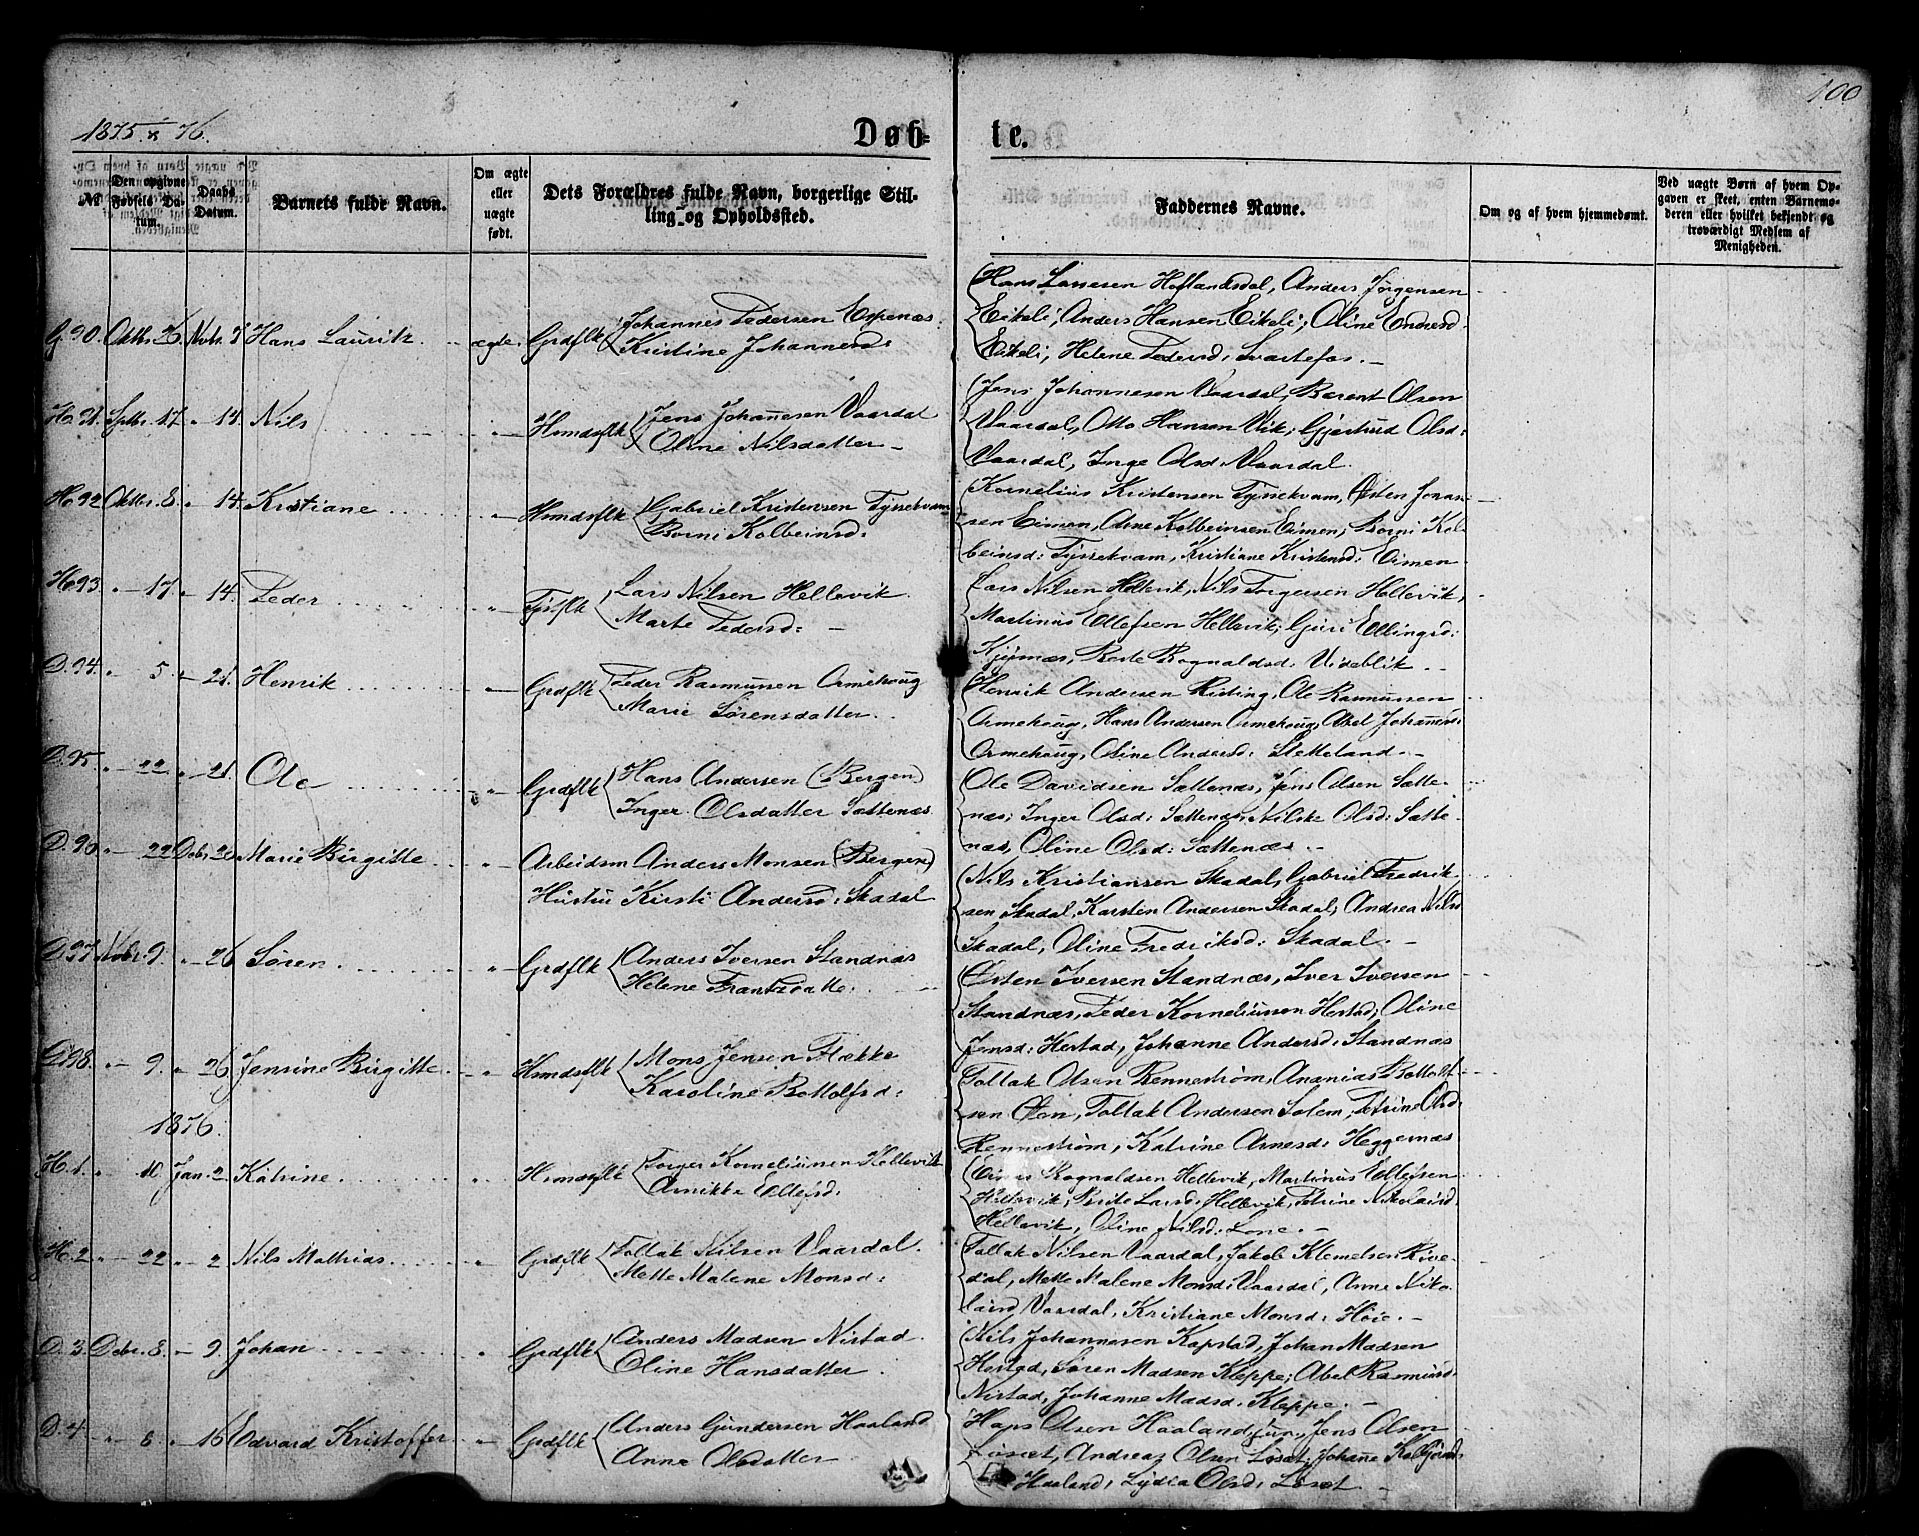 100
1875 & 76.
Døb- te.
№
Den opgivne Fødsels Datum.
Daabs Datum.
Barnets fulde Navn.
Om ægte eller uægte født.
Dets Forældres fulde Navn, borgerlige Stilling og Opholdssted.
Faddernes Navne.
Om og af hvem hjemmedømt.
Ved uægte Børn af hvem Opgaven er skeet, enten Barnemoderen eller hvilket bekjendt og troværdigt Medlem af Menigheden.
G. 90. Oktbr. 26 Novbr. 7 Hans Lauritz ægte. Grdflk Johannes Pedersen Espenæs
Kristine Johannesd:
Hans Larsen Hoflandsdal, Anders Jørgensen
Eikeli, Anders Hansen Eikeli; Oline Endresd.
Eikeli, Helene Pedersd: Svartefos. -
Ho 91. Sptbr. 17 " 14. Nils " Hsmdsflk Jens Johanesen Vaardal
Oline Nilsdatter -
Jens Johannesen Vaardal, Berent Olsen
Vaardal, Otto Hansen Vik; Gjertrud Olsd:
Vaardal, Inge Olsd. Vaardal.
Ho 92 Oktbr. 8. " 14. Kristiane " Hsmdsflk Gabriel Kristensen Tyssekvam
Borni Kolbeinsd:
Kornelius Kristensen Tyssekvam, Østen Jonas-
sen Eimen, Arne Kolbeinsen Eimen; Borni Kol-
beinsd: Tyssekvam, Kristiane Kristensd: Eimen
Ho 93 " 17. " 14. Peder " Tjstflk Lars Nilsen Hellevik.
Marte Pedersd: -
Lars Nilsen Hellevik, Nils Torgersen Hellevik,
Martinus Ellefsen Hellevik; Guri Ellingsd:
Rognaldsd: Videblik -
D. 94. " 5 " 21. Henrik " Grdflk Peder Rasmussen Ormehoug
Marie Sørensdatter.
Henrik Andersen Risting, Ole Rasmussen
Ormehoug, Hans Andersen Ormehoug, Abel Johannes:
Ormehoug, Oline Andersd: Stetteland. -
D. 95 " 22 " 21. Ole " Grdflk Hans Andersen (Bergen)
Inger Olsdatter Sættenæs
Ole Davidsen Sættenæs, Jens Olsen Sætte-
næs; Inger Olsd: Sættenæs, Nilske Olsd: Sætte-
næs, Oline Olsd: Sættenæs. -
D. 96. " 22 Debr. 26 Marie Birgitte " Arbeidsm Anders Monsen (Bergen)
Hustru Kirsti Andersd: Skadal
Nils Kristiansen Skadal, Gabriel Fredrik-
sen Skadal, Karsten Andersen Skadal; Andrea Nilsd
Skadal, Oline Fredriksd: Skadal. -
D. 97. Novbr. 9. " 26 Søren " Grdflk Anders Iversen Standnæs
Helene Frantzdatte:
Østen Iversen Standnæs, Iver Iversen
Standnæs, Peder Korneliussen Hestad; Oline
Jensd: Hestad, Johanne Andersd: Standnæs
G. 98. " 9. " 26 Jensine Birgitte " Hsmdsflk Mons Jensen Flekke
Karoline Bottolfsd:
Follak Olsen Rennestrøm, Ananias Bottolf-
sen Øen, Follak Andersen Solem, Petrine Olsd:
Rennestrøm, Katrine Arnesd: Heggernæs
1876.
H. 1. " 10 Jan. 2 Katrine " Hsmdsflk Torger Korneliussen Hellevik
Annikke Ellefsd:
Rognaldsen Hellevik, Martinus Ellefsen
Hellevik; Brite Larsd: Hellevik, Petrine Nikolaisd:
Hellevik, Oline Nilsd: Lone. -
H. 2 " 22 " 2 Nils Mathias " Grdflk Follak Nilsen Vaardal.
Mette Malene Monsd:
Follak Nilsen Vaardal, Jakob Klemetsen Rive-
dal, Mette Malene Monsd: Vaardal, Anne Niko-
laisd. Vaardal, Kristiane Monsd: Høie. -
D. 3. Debr. 8. " 9. Johan " Grdflk Anders Madsen Nistad.
Oline Hansdatter.
Nils Johannesen Kapstad, Johan Madsen
Hestad, Søren Madsen Kleppe; Abel Rasmusd:
Nistad, Johanne Madsd: Kleppe. -
D. 4 " 6 " 16 Edvard Kristoffer " Grdflk Anders Gundersen Haaland
Anne Olsdatter
Hans Olsen Haaland jun, Jens Olsen
Løset, Andreas Olsen Løset; Johane
Haaland, Lydia Olsd: Løset. -